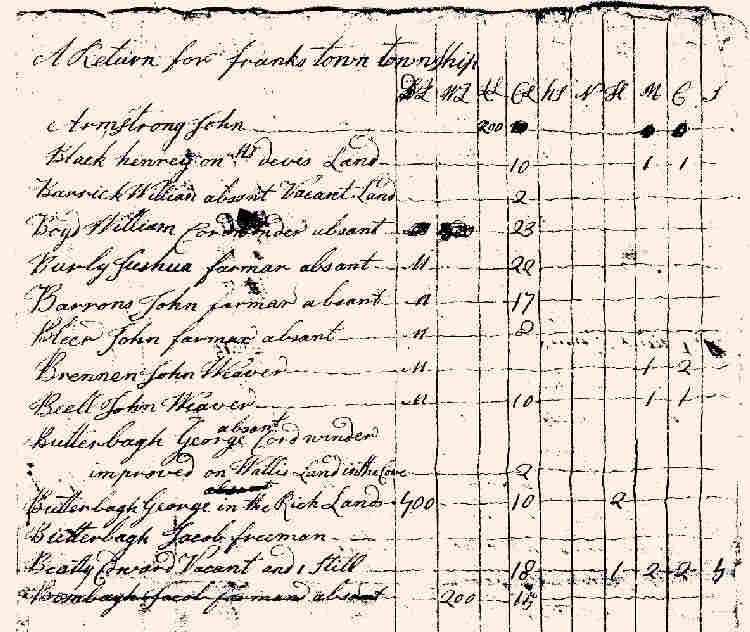 A Return for frankstown township
DL WL CL hs N H M C S
Armstrong John 200
Black henrey on devis Land 10 1 1
Barrick William absent Vacant Land 2
Boyd William Cordwinder absant 23
Burly Jushua farmar absant " 20
Barrons John farmar absant " 17
Bleer John farmar absant " 2
Brennen John Weaver " 1 2
Beell John Weaver " 10 1 1
absant
Butterbagh George Cordwinder
improved on Wallis Land in the Cove 2
absent
Butterbagh George in the Rich Land 400 10 2
Butterbagh Jacob freeman
Beatty Edward Vacant and 1 Still 18 1 2 2 5
Jacob farmar absant 200 15